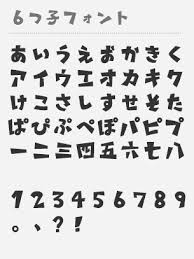 6つ子フォント
あいうえおかきく
アイウエオカキク
けこさしすせそた
ぱぴぷぺぽパピプ
一二三四五六七八
123456789
。、?!